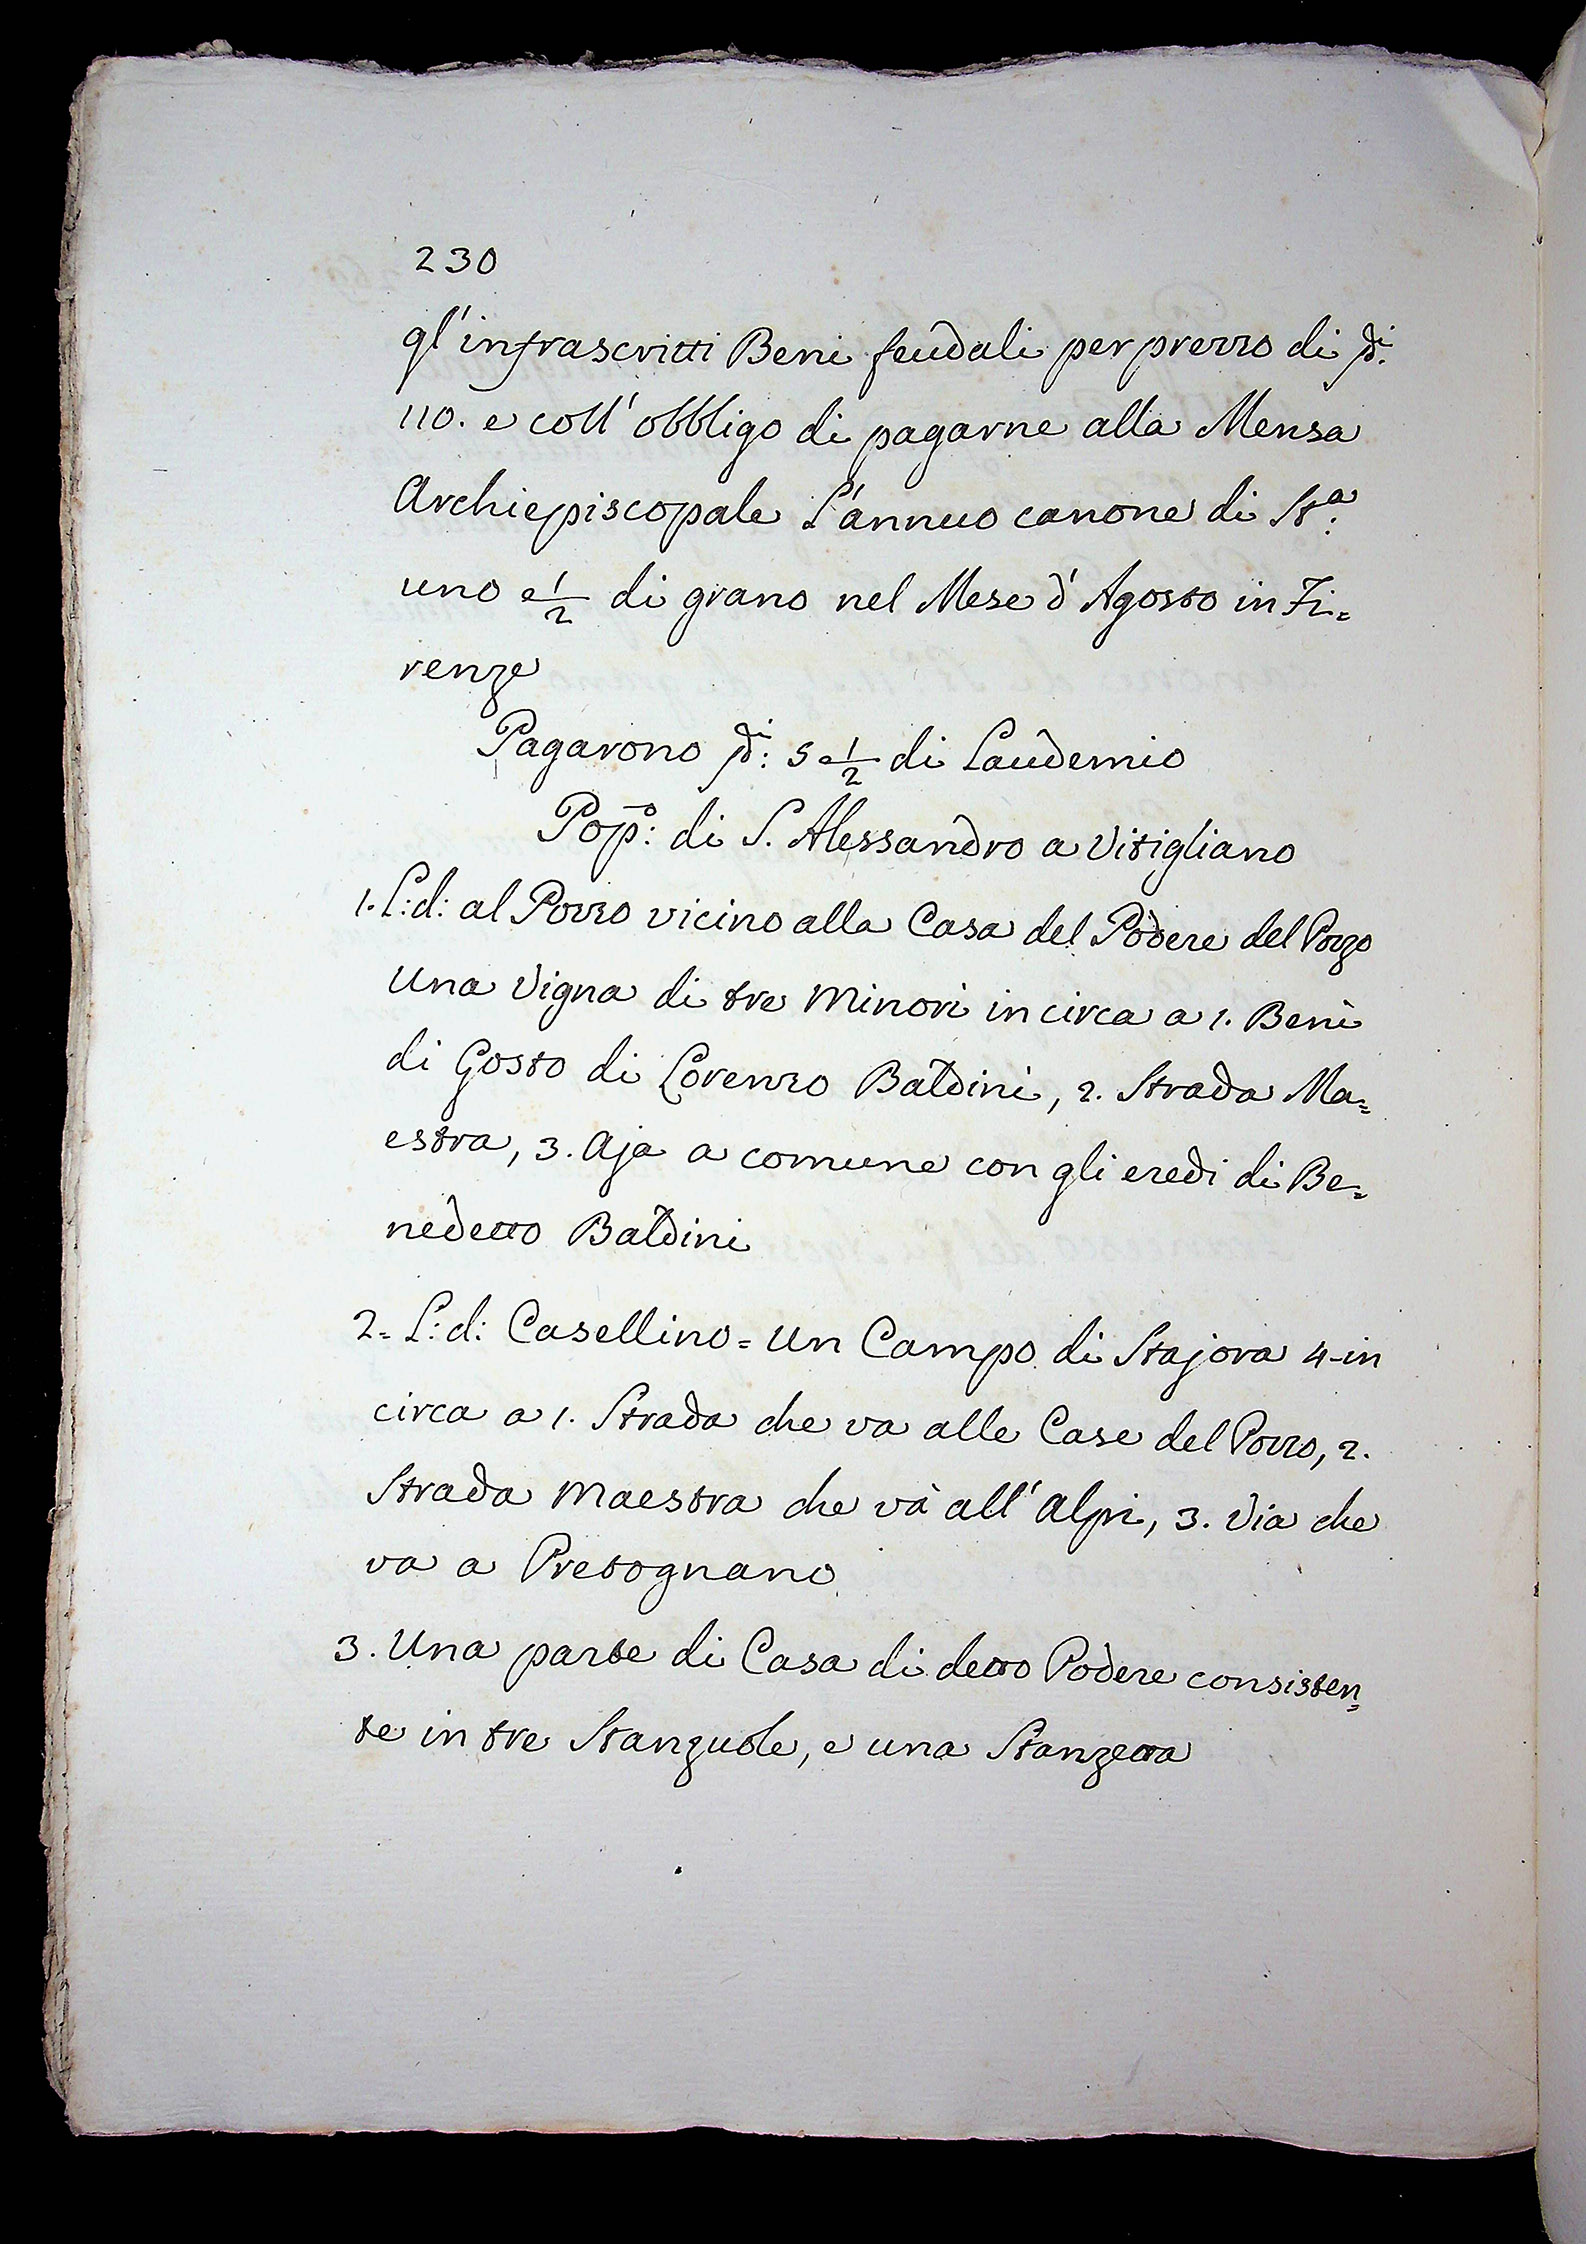 230
gl'infrascritti Beni feudali per prezzo di
110. e coll'obbligo di pagarne alla Mensa
Archiepiscopale l'annuo canone di Sta:
uno e 1/2 di grano nel Mese d'Agosto in Fi=
renze
Pagarono 5 e 1/2 di Laudemio
Popo: di S. Alessandro a Vitigliano
1. L: d: al Pozzo vicino alla Casa del Podere del Pozzo
Una Vigna di tre Minori in circa a 1. Beni
di Gosto di Lorenzo Baldini, 2. Strada Ma=
estra, 3. Aja a comune con gli eredi di Be=
nedetto Baldini
2= L: d: Casellino = Un Campo di Stajora 4 in
circa a 1. Strada che va alle Case del Pozzo, 2.
Strada Maestra che và all'Alpi, 3. Via che
va a Pretognano
3. Una parte di Casa di detto Podere consisten=
te in tre Stanzuole, e una Stanzetta